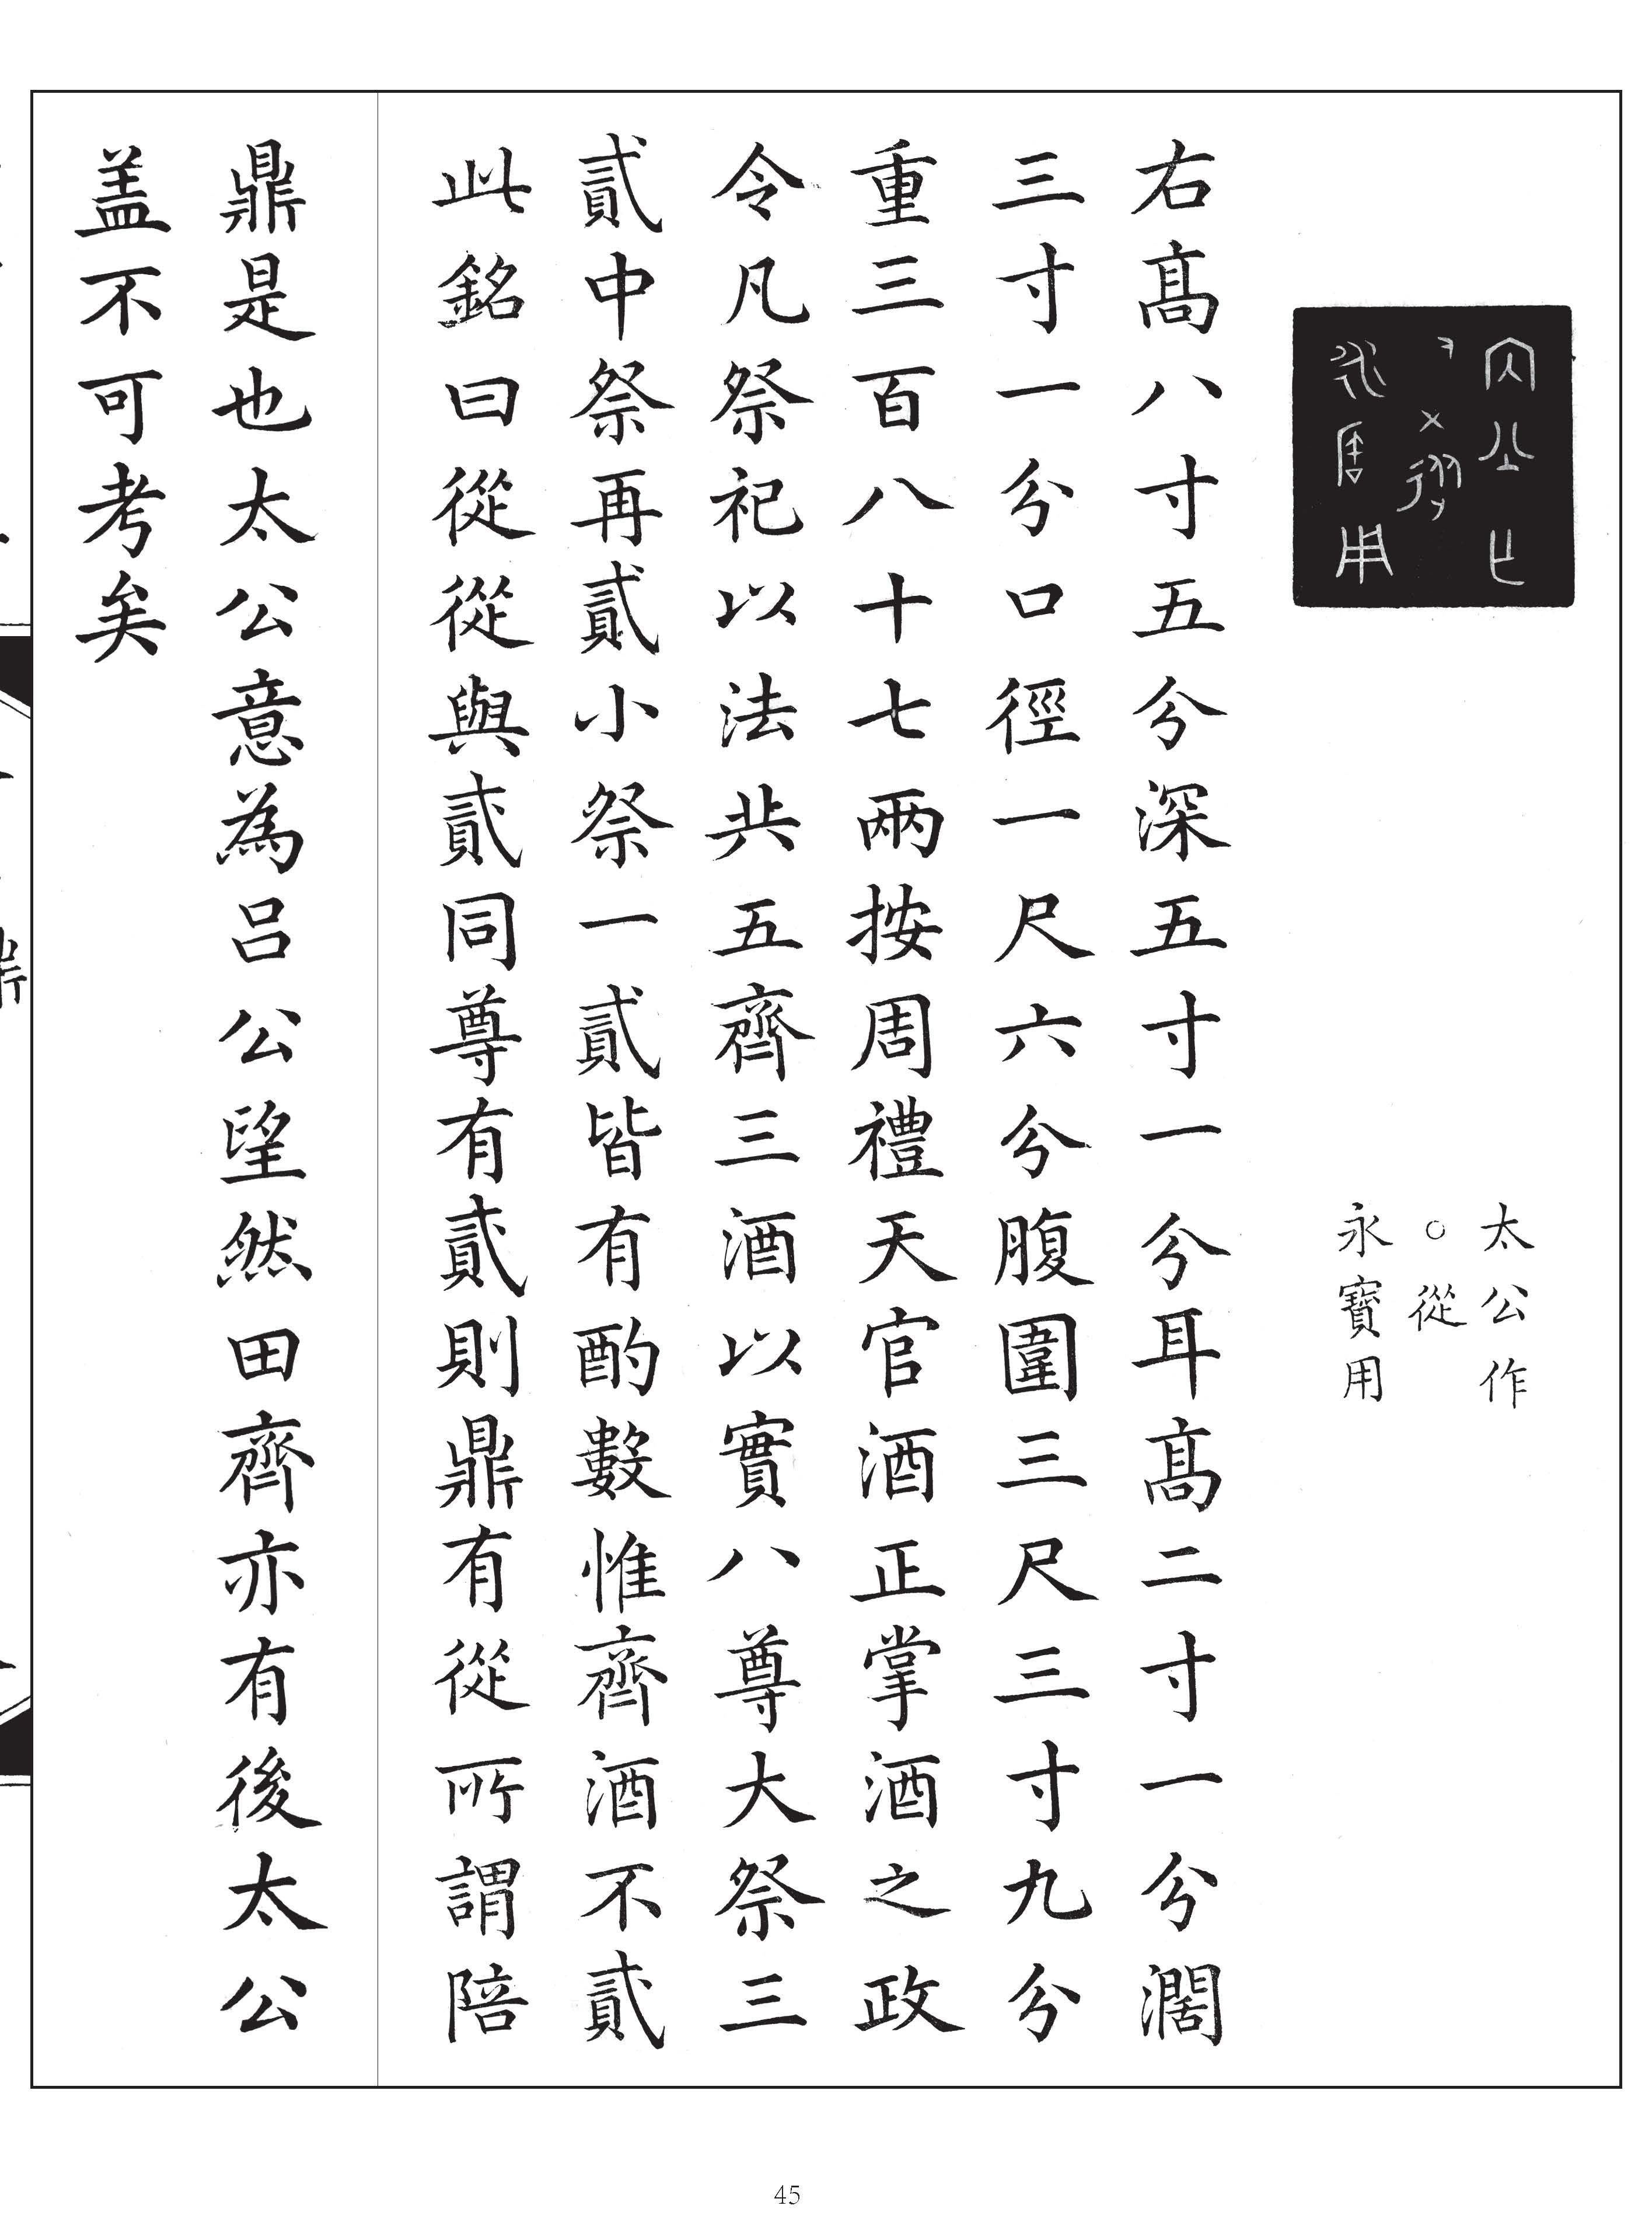 太公作
○從
永寶用
右高八寸五分深五寸一分耳高二寸一分濶
三寸一分口徑一尺六分腹圍三尺三寸九分
重三百八十七兩按周禮天官酒正掌酒之政
令凡祭祀以法共五齊三酒以實八尊大祭三
貳中祭再貳小祭一貳皆有酌數惟齊酒不貳
此銘曰從從與貳同尊有貳則鼎有從所謂陪
鼎是也太公意為呂公望然田齊亦有後太公
盖不可考矣
45